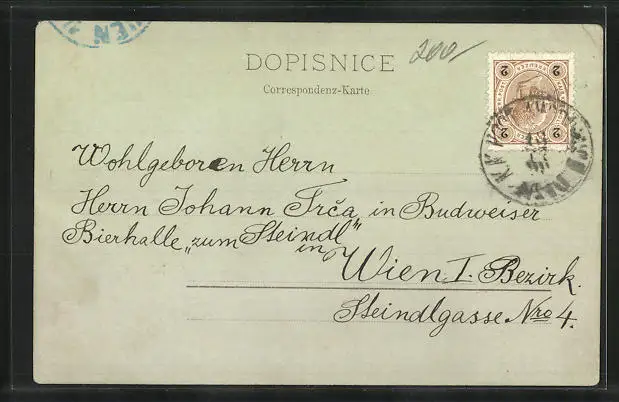 WIEN
200-
DOPISNICE
Correspondenz-Karte
2 2
2 2
Wohlgeboren Herrn
Herrn Johann Frča in Budweiser
Bierhalle „zum Steindl"
in
Wien I. Bezirk.
Steindlgasse Nro 4.